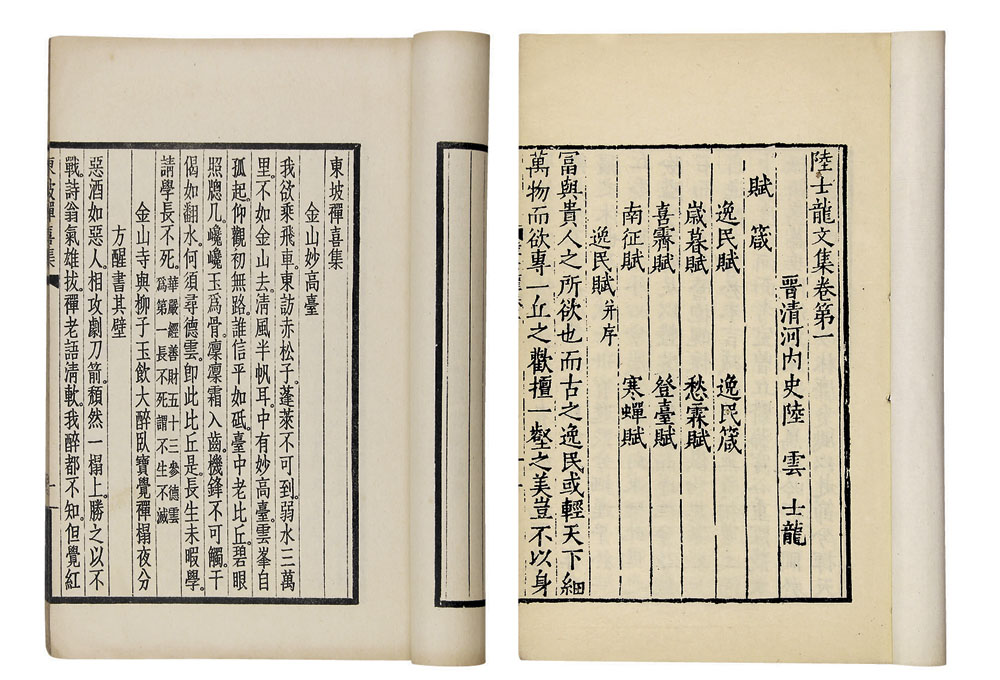 東坡禪喜集
金山妙高臺
我欲乘飛車。東訪赤松子。蓬萊不可到。弱水三萬
里。不如金山去。清風半帆耳。中有妙高臺。雲峯自
孤起。仰觀初無路。誰信平如砥。臺中老比丘。碧眼
照牕几。巉巉玉爲骨。凛凛霜入齒。機鋒不可觸。千
偈如翻水。何須尋德雲。卽此比丘是。長生未暇學。
請學長不死。華嚴經善財五十三參德雲
爲第一長不死謂不生不滅
金山寺與柳子玉飲大醉臥寶覺禪榻夜分
方醒書其壁
惡酒如惡人。相攻劇刀箭。頹然一榻上。勝之以不
戰。詩翁氣雄拔。禪老語清軟。我醉都不知。但覺紅
東坡禪喜集 一
陸士龍文集卷第一
晉清河內史陸 雲 士龍
賦 箴
逸民賦 逸民箴
歲暮賦 愁霖賦
喜霽賦 登臺賦
南征賦 寒蟬賦
逸民賦并序
富與貴人之所欲也而古之逸民或輕天下細
萬物而欲專一丘之歡擅一壑之美豈不以身